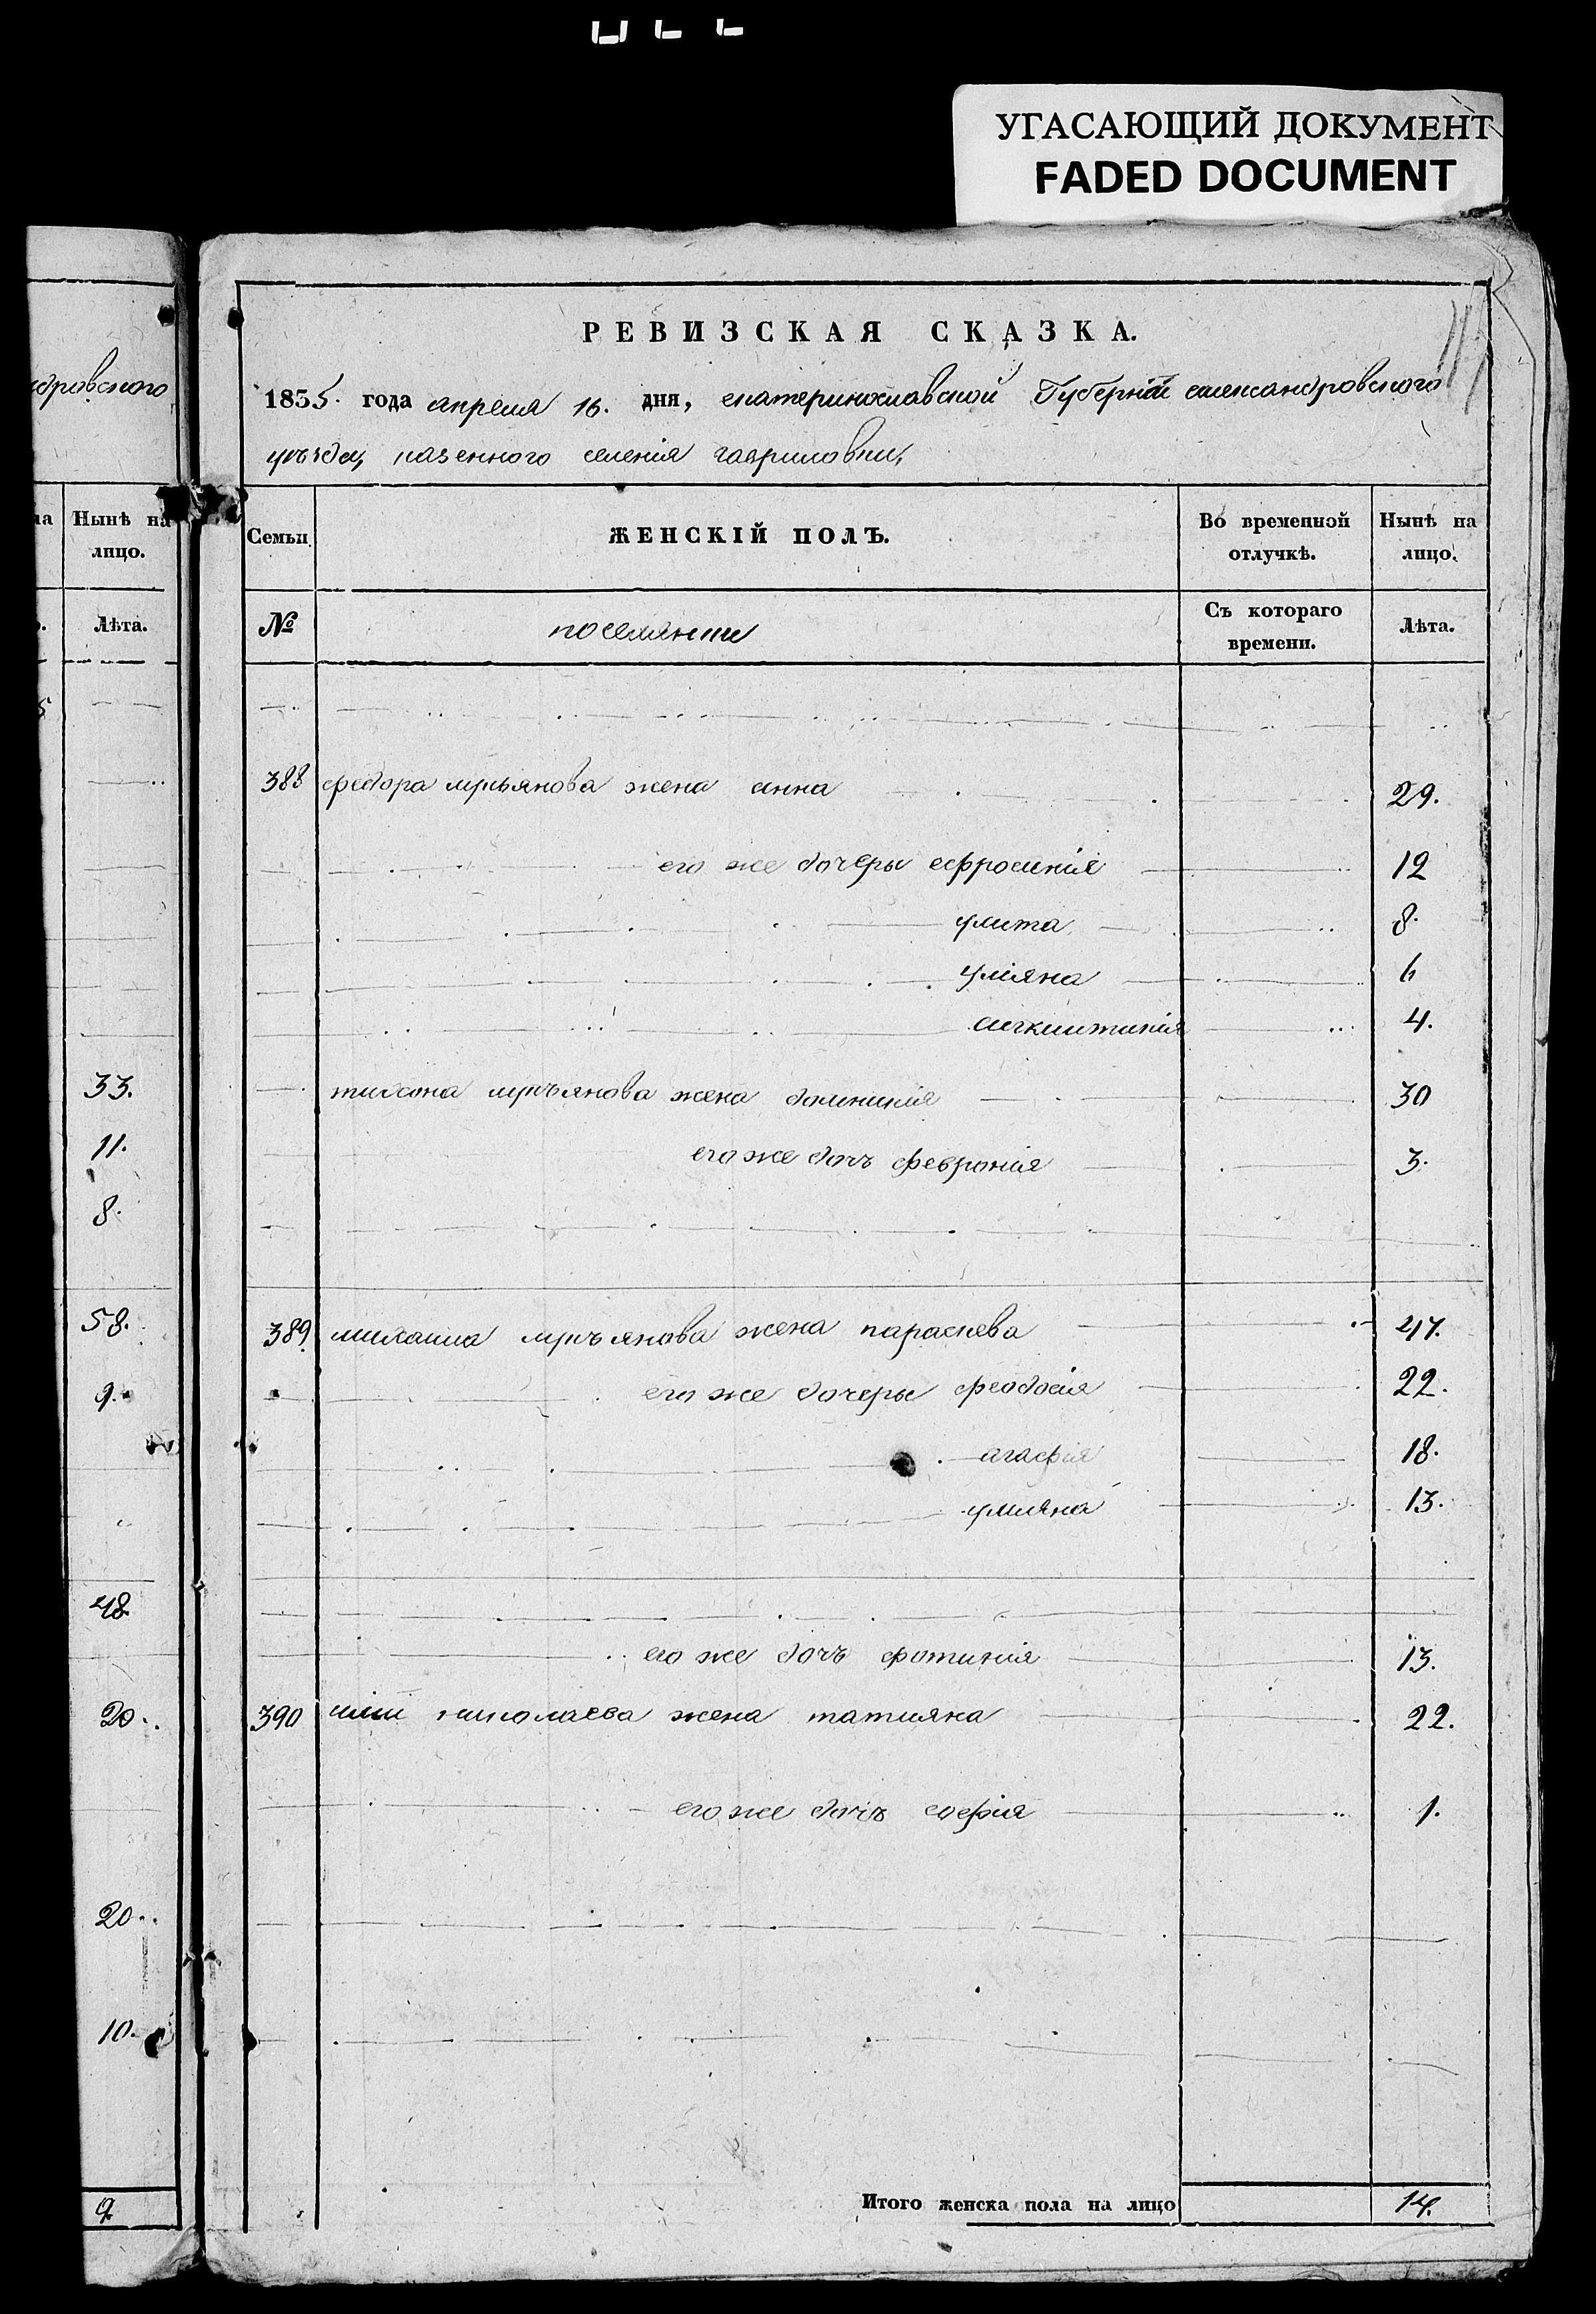 УГАСАЮЩИЙ ДОКУМЕНТ
FADED DOCUMENT
дровского
Нынѣ на
лицо.
Лѣта.
33.
11.
8.
58.
9.
48.
20.
20.
10.
9.
РЕВИЗСКАЯ СКАЗКА.
1835. года апреля 16. дня, екатеринославской Губернiи александровского
уѣзда, казенного селенiя гавриловки,
Семьи ЖЕНСКIЙ ПОЛЪ. Во временной отлучкѣ. Нынѣ на лицо.
№ поселяне Съ котораго времени. Лѣта.
388 федора лукьянова жена анна 29.
его же дочеры ефросинiя 12
улита 8.
улiяна 6
4.
тихона лукъянова жена домникiя 30
его же дочь феврония 3.
389. михаила лукъянова жена параскева 47.
его же дочеры феодосiя 22.
агафiя 18.
улияна 13.
его же дочь фотинiя 13.
390 николаева жена татияна 22.
его же дочь софiя 1.
Итого женска пола на лицо 14.